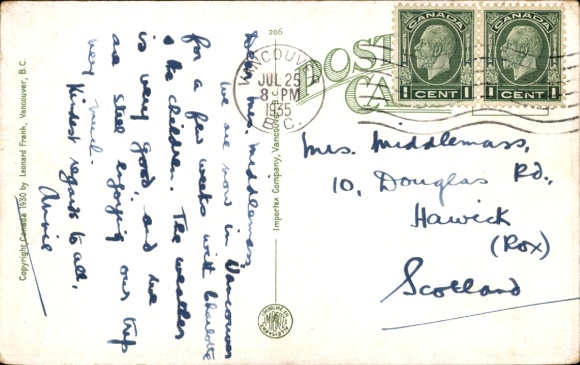 206
POST CA
CANADA
1 CENT 1
CANADA
1 CENT 1
VANCOUVER
JUL 25
8 PM
1935
B.C.
Dear Mrs. Middlemass,
We are now in Vancouver
for a few weeks with Charlotte
& the children. The weather
is very good, and we
are still enjoying our trip
very much.
Kindest regards to all,
Annie
Mrs. Middlemass,
10, Douglas Rd.,
Hawick
(Rox)
Scotland
Copyright Canada 1930 by Leonard Frank, Vancouver, B.C.
Importex Company, Vancouver, B.C.